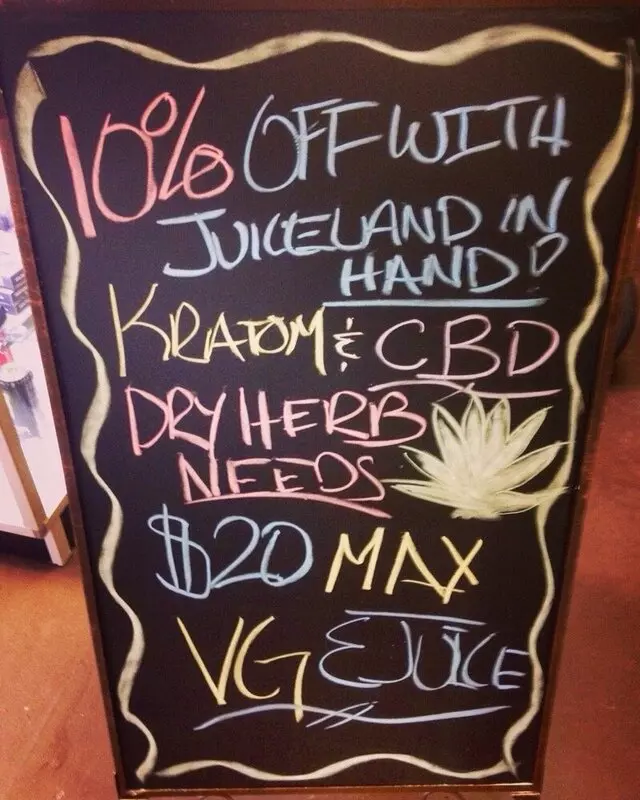 10% OFF WITH
JUICELAND IN
HAND!
KRATOM & CBD
DRY HERB
NEEDS
$20 MAX
VG EJUICE